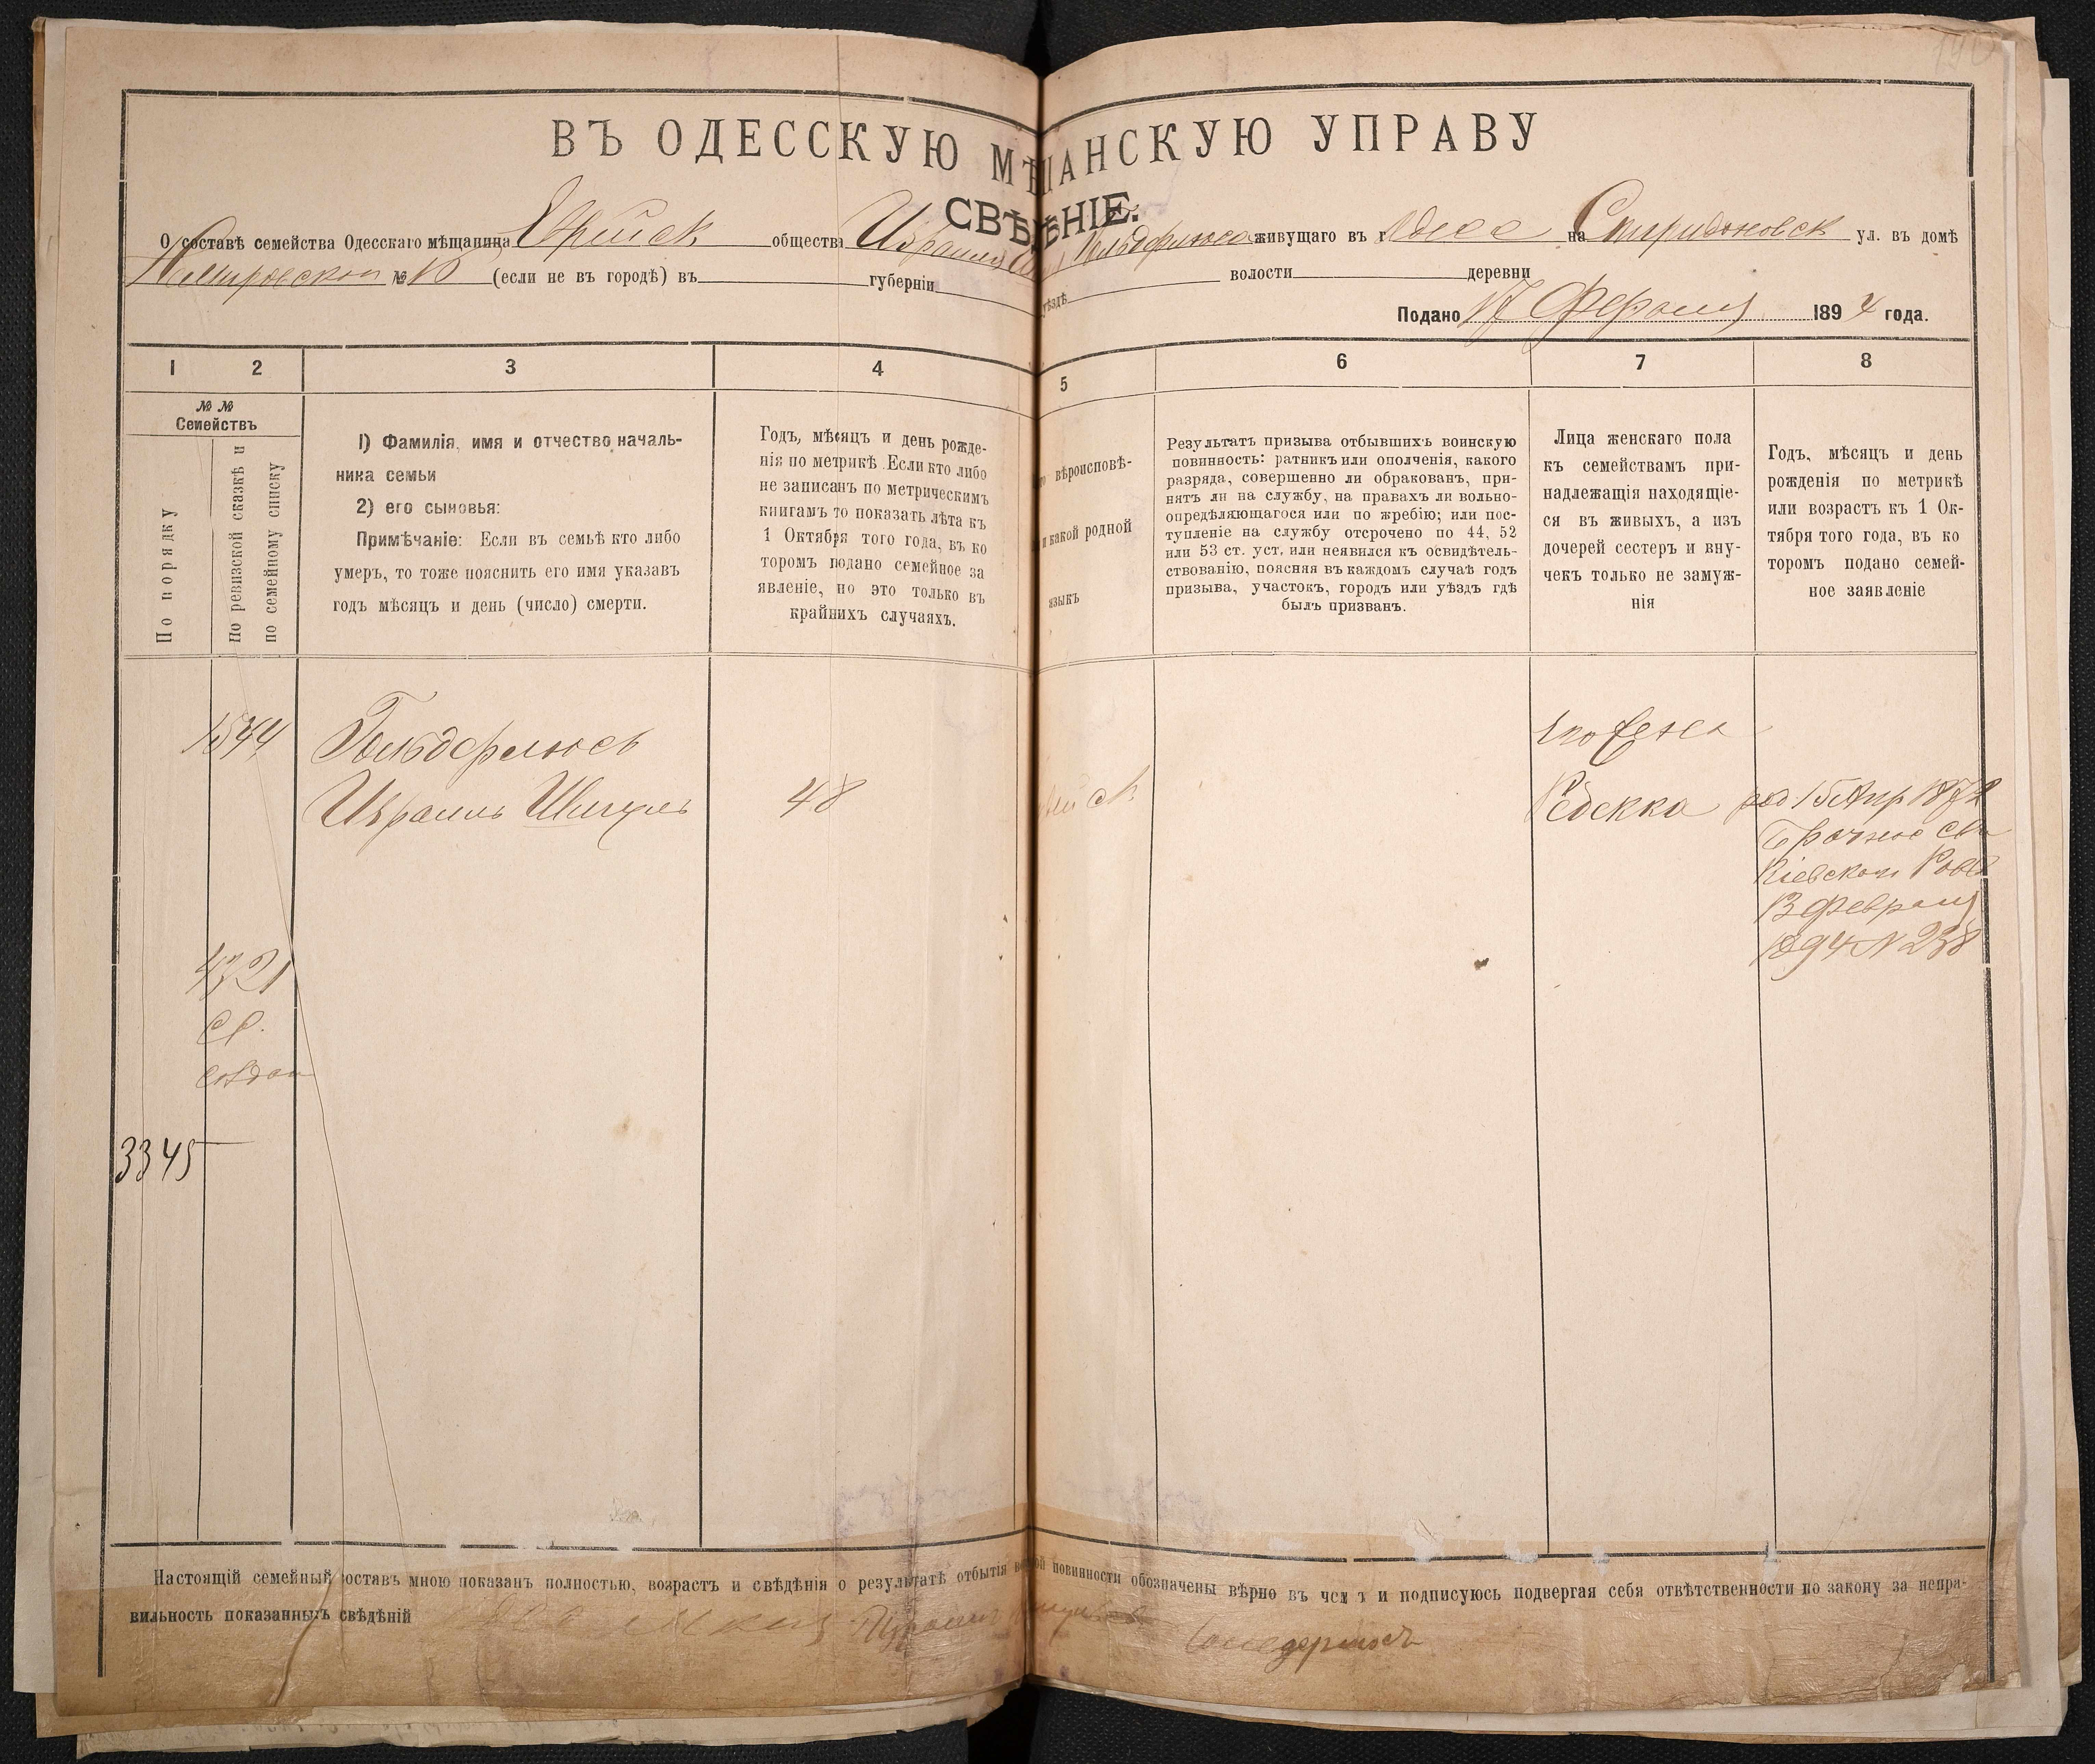 ВЪ ОДЕССКУЮ МѢЩАНСКУЮ УПРАВУ
СВѢДѢНІЕ.
О составѣ семейства Одесскаго мѣщанина Еврейск общества Израиля Гольдфлюса живущаго въ г Одесс на Спиридоновск ул. въ домѣ
№ 13 (если не въ городѣ) въ губерніи уѣздѣ волости деревни
Подано 17 Февраля 1894 года.
1 2 3 4 5 6 7 8
№ №
Семействъ
По порядку
По ревизской сказкѣ и
по семейному списку
1) Фамилія, имя и отчество началь-
ника семьи
2) его сыновья:
Примѣчаніе: Если въ семьѣ кто либо
умеръ, то тоже пояснить его имя указавъ
годъ мѣсяцъ и день (число) смерти.
Годъ, мѣсяцъ и день рожде-
нія по метрикѣ. Если кто либо
не записанъ по метрическимъ
книгамъ то показать лѣта къ
1 Октября того года, въ ко
торомъ подано семейное за
явленіе, но это только въ
крайнихъ случаяхъ.
вѣроисповѣ-
и какой родной
языкъ
Результатъ призыва отбывшихъ воинскую
повинность: ратникъ или ополченія, какого
разряда, совершенно ли обракованъ, при-
нятъ ли на службу, на правахъ ли вольно-
опредѣляющагося или по жребію; или пос-
тупленіе на службу отсрочено по 44, 52
или 53 ст. уст. или неявился къ освидѣтель-
ствованію, поясняя въ каждомъ случаѣ годъ
призыва, участокъ, городъ или уѣздъ гдѣ
былъ призванъ.
Лица женскаго пола
къ семействамъ при-
надлежащія находящіе-
ся въ живыхъ, а изъ
дочерей сестеръ и вну-
чекъ только не замуж-
нія
Годъ, мѣсяцъ и день
рожденія по метрикѣ
или возрастъ къ 1 Ок-
тября того года, въ ко
торомъ подано семей-
ное заявленіе
1544 Гольдфлюсъ
Израиль Шмуль 48
его жена
Ребекка род 15 Апр 1872
Брачное св
Кіевскаго Рав
13 Февраля
1894 N 238
4321
3345
Настоящій семейный составъ мною показанъ полностью, возрастъ и свѣдѣнія о результатѣ отбытія повинности обозначены вѣрно въ чемъ и подписуюсь подвергая себя отвѣтственности по закону за непра-
вильность показанныхъ свѣдѣній